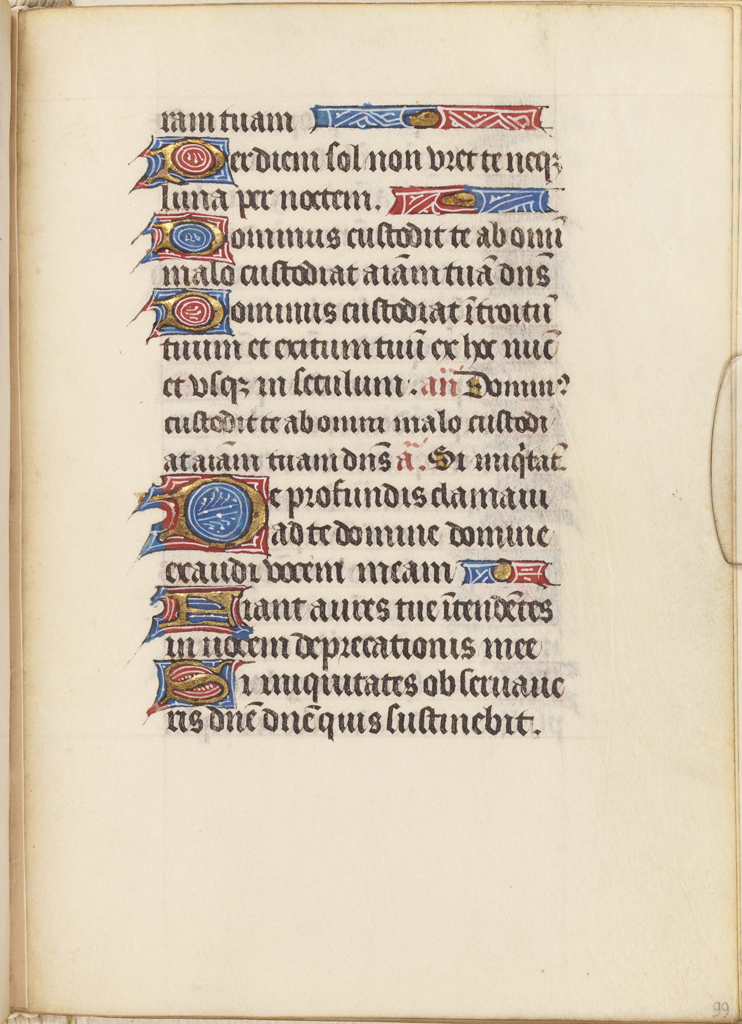 ram tuam
Per diem sol non vret te neqȝ
luna per noctem.
Dominus custodit te ab om̄i
malo custodiat aīam tuā dn̄s
Dominus custodiat ītroitū
tuum et exitum tuū ex hoc nūc
et vsqȝ in seculum. an̄ Domin?
custodit te ab omni malo custodi
at aīam tuam dn̄s ā. Si iniq̇tat̄
De profundis clamaui
ad te domine domine
exaudi vocem meam
Fiant aures tue ītendētes
in uocem deprecationis mee
Si iniquitates obseruaue
ris dn̄e dn̄e quis sustinebit.
99